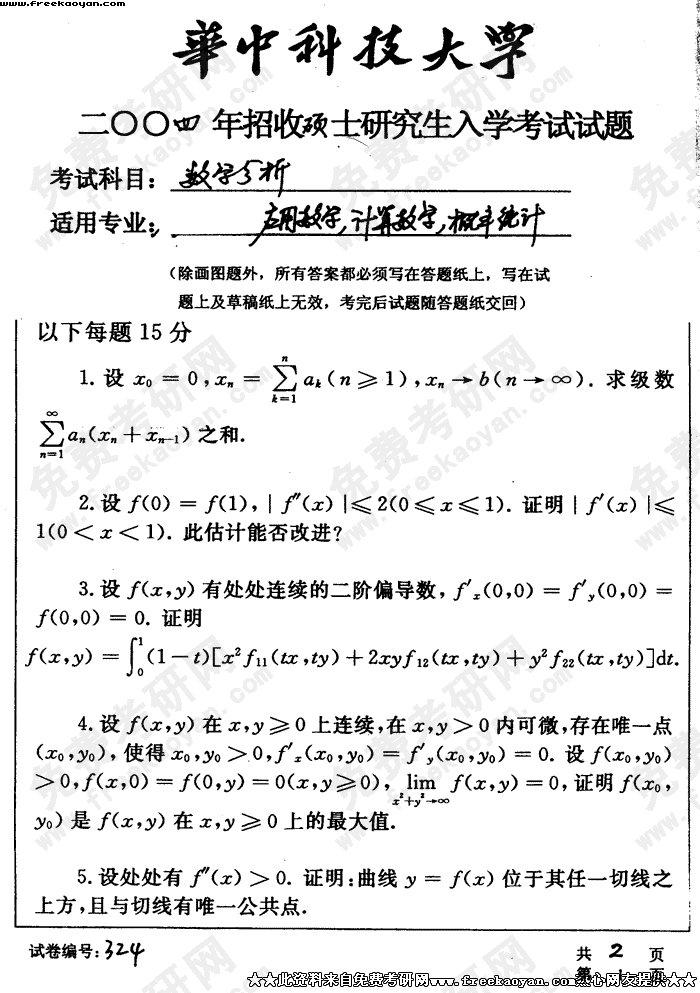 www.freekaoyan.com
華中科技大学
二〇〇四 年招收硕士研究生入学考试试题
考试科目: 数学分析
适用专业: 应用数学, 计算数学, 概率统计
(除画图题外, 所有答案都必须写在答题纸上, 写在试
题上及草稿纸上无效, 考完后试题随答题纸交回)
以下每题 15 分
1. 设 x₀ = 0, xₙ = ∑ₖ₌₁ⁿ aₖ (n ⩾ 1), xₙ → b(n → ∞). 求级数
∑ₙ₌₁^∞ aₙ(xₙ + xₙ₋₁) 之和.
2. 设 f(0) = f(1), | f″(x) |⩽ 2(0 ⩽ x ⩽ 1). 证明 | f′(x) |⩽
1(0 < x < 1). 此估计能否改进?
3. 设 f(x,y) 有处处连续的二阶偏导数, f′ₓ(0,0) = f′ᵧ(0,0) =
f(0,0) = 0. 证明
f(x,y) = ∫₀¹(1 − t)[x²f₁₁(tx,ty) + 2xyf₁₂(tx,ty) + y²f₂₂(tx,ty)]dt.
4. 设 f(x,y) 在 x,y ⩾ 0 上连续, 在 x,y > 0 内可微, 存在唯一点
(x₀,y₀), 使得 x₀,y₀ > 0, f′ₓ(x₀,y₀) = f′ᵧ(x₀,y₀) = 0. 设 f(x₀,y₀)
> 0, f(x,0) = f(0,y) = 0(x,y ⩾ 0), lim_{x²+y²→∞} f(x,y) = 0, 证明 f(x₀,
y₀) 是 f(x,y) 在 x,y ⩾ 0 上的最大值.
5. 设处处有 f″(x) > 0. 证明: 曲线 y = f(x) 位于其任一切线之
上方, 且与切线有唯一公共点.
试卷编号: 324
共 2 页
第 页
★★此资料来自免费考研网www.freekaoyan.com热心网友提供★★